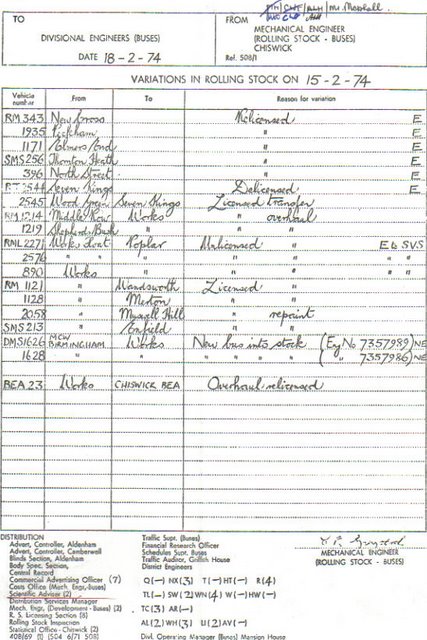 Mr. Marshall
TO
FROM
DIVISIONAL ENGINEERS (BUSES)
MECHANICAL ENGINEER
(ROLLING STOCK - BUSES)
CHISWICK
DATE 18-2-74
Ref. 508/1
VARIATIONS IN ROLLING STOCK ON 15-2-74
Vehicle number From To Reason for variation
RM 343 New Cross Relicensed E
1935 Peckham " E
1171 Palmers End " E
SMS 256 Thornton Heath " E
396 North Street " E
RT 2544 Seven Kings Delicensed E
2545 Wood Green Seven Kings Licensed transfer
RM 1214 Middle Row Works " overhaul
1219 Shepherds Bush " " "
RML 2271 Works Float Poplar Unlicensed " E to SVS
2576 " " " " " "
890 Works " " " " "
RM 1121 " Wandsworth Licensed "
1128 " Merton " "
2058 " Muswell Hill " repaint
SMS 213 " Enfield " "
DMS1626 MCW BIRMINGHAM Works New bus into stock (Eng No 7357989) NE
1628 " " " " " " ( " 7357986) NE
BEA 23 Works CHISWICK BEA Overhaul-relicensed
DISTRIBUTION
Advert, Controller, Aldenham
Advert, Controller, Camberwell
Blinds Section, Aldenham
Body Spec. Section,
Central Record
Commercial Advertising Officer (7)
Costs Office (Mech. Engr-Buses)
Scientific Adviser (2)
Distribution Services Manager
Mech. Engr, (Development - Buses) (2)
R. S. Licensing Section (8)
Rolling Stock Inspection
Statistical Office - Chiswick (2)
890/69 (1) (504 6/71 508)
Traffic Supt. (Buses)
Financial Research Officer
Schedules Supt. Buses
Traffic Auditor, Griffith House
District Engineers
Q(-) NX(3) T(-) HT(-) R(4)
TL(-) SW(2) WN(4) W(-) HW(-)
TC(3) AR(-)
AL(2) WH(3) U(2) AV(-)
Divl. Operating Manager (Buses) Mansion House
MECHANICAL ENGINEER
(ROLLING STOCK - BUSES)